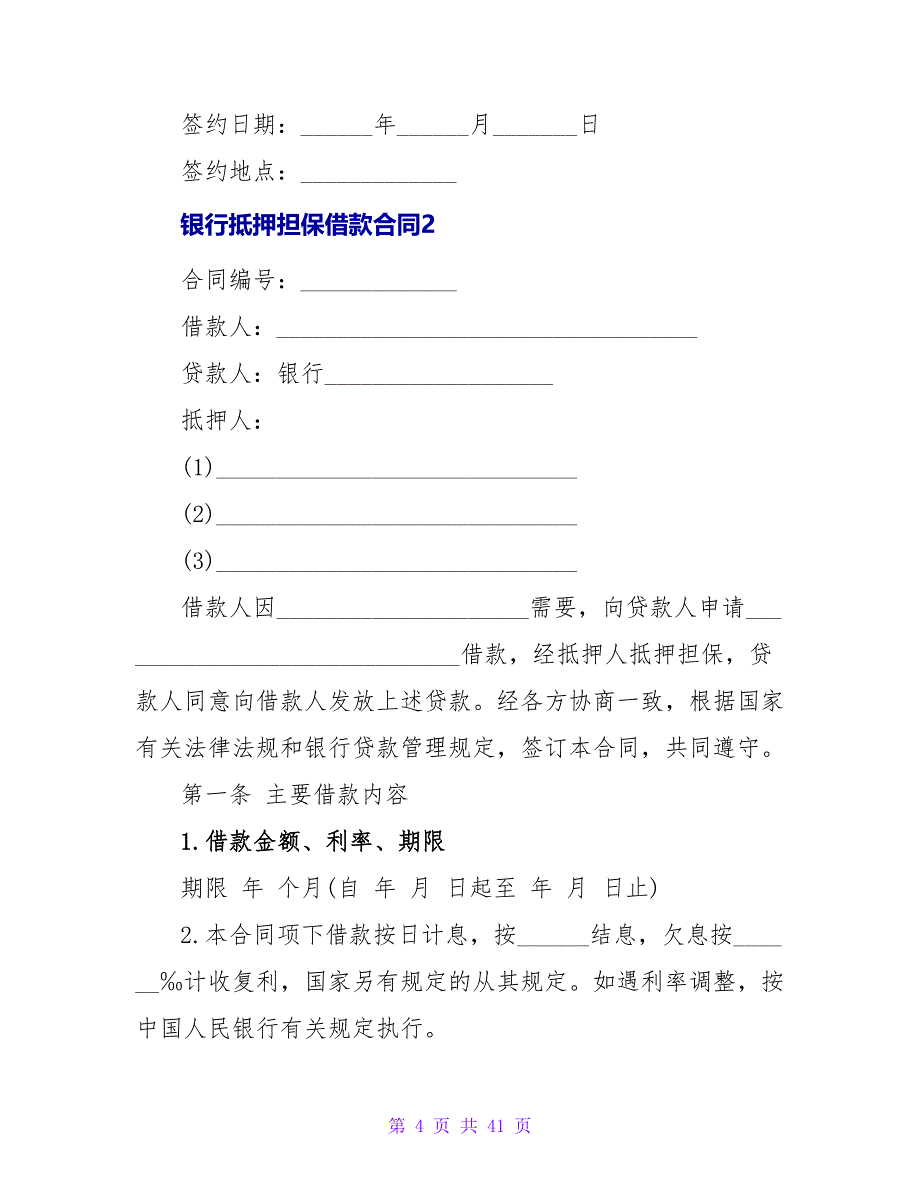 签约日期：______年______月_______日
签约地点：_____________
银行抵押担保借款合同2
合同编号：_____________
借款人：___________________________________
贷款人：银行___________________
抵押人：
(1)______________________________
(2)______________________________
(3)______________________________
借款人因_____________________需要，向贷款人申请___
___________________________借款，经抵押人抵押担保，贷
款人同意向借款人发放上述贷款。经各方协商一致，根据国家
有关法律法规和银行贷款管理规定，签订本合同，共同遵守。
第一条 主要借款内容
1.借款金额、利率、期限
期限 年 个月(自 年 月 日起至 年 月 日止)
2.本合同项下借款按日计息，按______结息，欠息按____
__‰计收复利，国家另有规定的从其规定。如遇利率调整，按
中国人民银行有关规定执行。
第 4 页 共 41 页